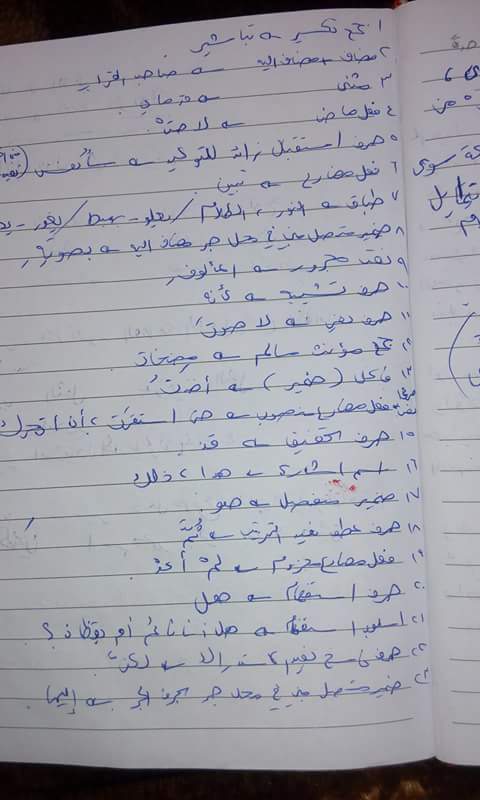 ١ جمع تكسير ← تباشير
٢ مضاف + مضاف إليه ← صاحب القرار
٣ مثنى ←
٤ فعل ماض ← لاحت
٥ حرف استقبال زائد للتوكيد ←
٦ فعل مضارع ← تبين
٧ طباق ← النور، الظلام / يعلو - يهبط /
٨ ضمير متصل مبني في محل جر مضاف إليه ← بصورته
٩ نعت مجرور ← المألوف
١٠ حرف تشبيه ← كأنه
١١ حرف نفي ← لا صوت
١٢ جمع مؤنث سالم ←
١٣ فاعل (ضمير) ←
فعل مضارع منصوب ← أن أتحرك
١٥ حرف تحقيق ← قد
١٦ اسم إشارة ← هذا، ذلك
١٧ ضمير منفصل ← هو
١٨ حرف عطف يفيد الترتيب ← ثم
١٩ فعل مضارع مجزوم ← لم أعد
٢٠ حرف استفهام ← هل
٢١ أسلوب استفهام ← هل أنا نائم أم يقظان؟
٢٢ حرف ناسخ يفيد الاستدراك ← لكن
٢٣ ضمير متصل مبني في محل جر بحرف الجر ← إليها